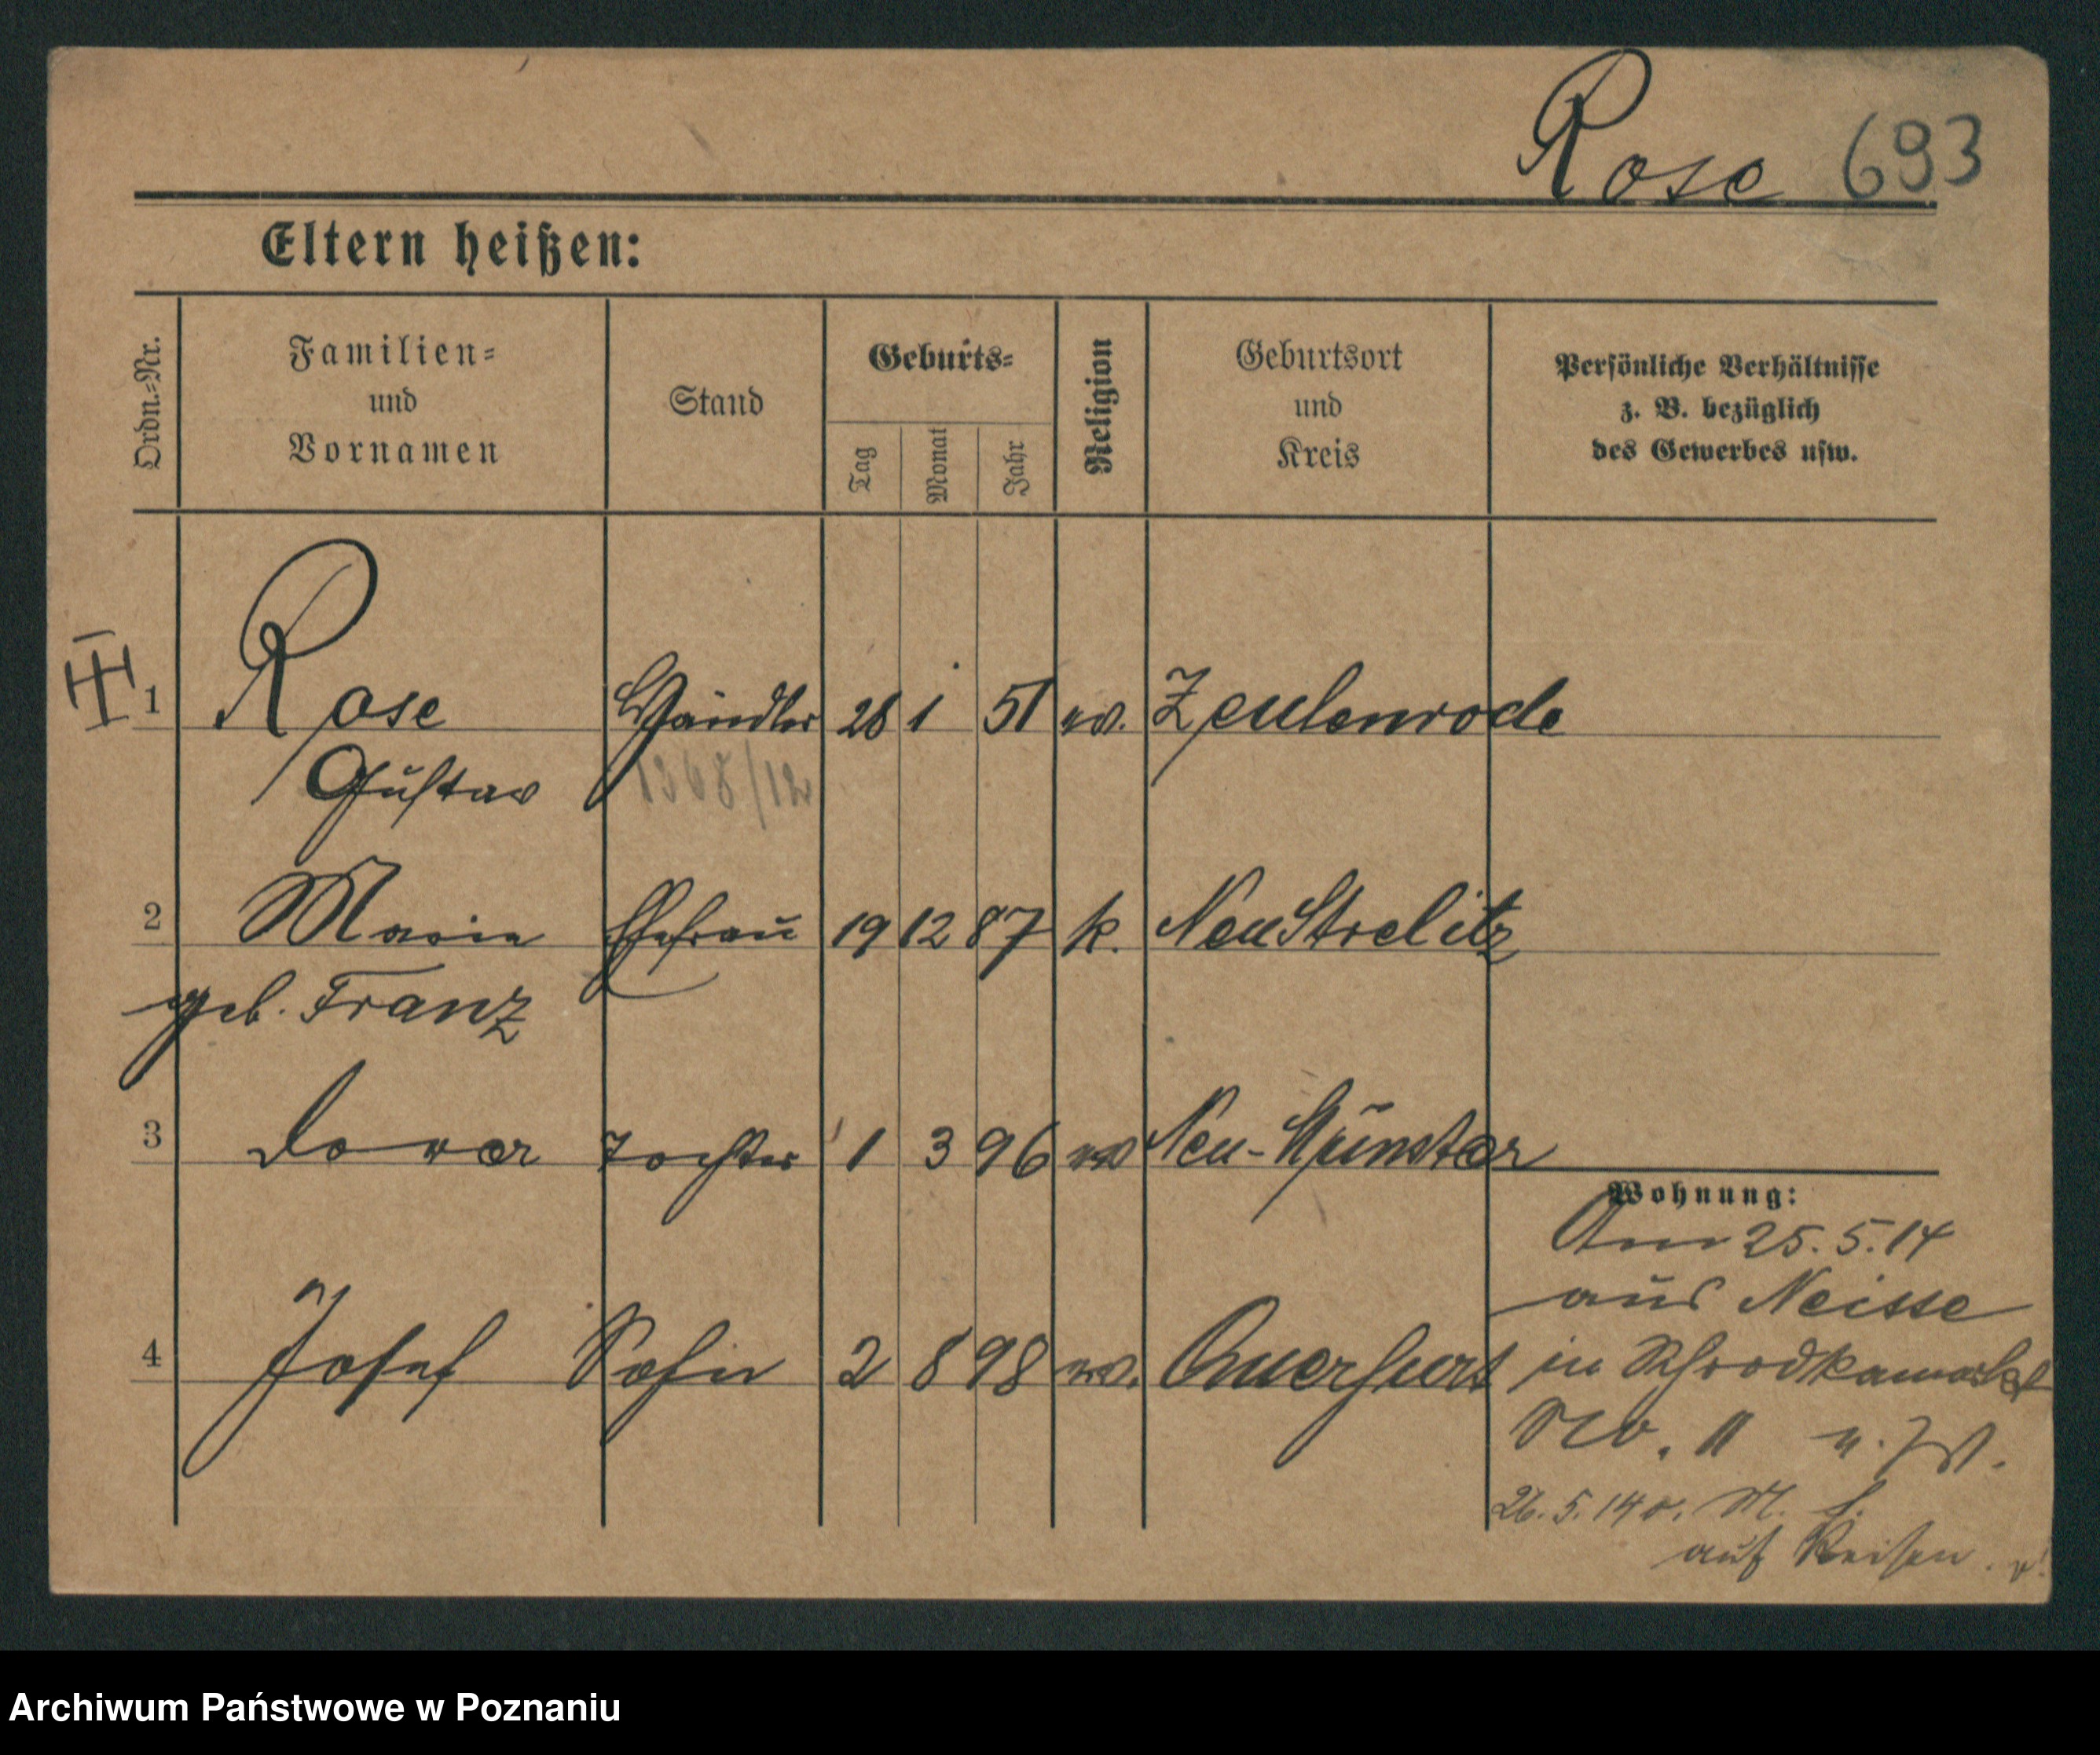 Rose 693
Eltern heißen:
Ordn.-Nr.
Familien-
und
Vornamen
Stand
Geburts-
Tag
Monat
Jahr
Religion
Geburtsort
und
Kreis
Persönliche Verhältnisse
z. B. bezüglich
des Gewerbes usw.
1 Rose Händler 28 1 51 ev. Zeulenrode
Gustav 1368/12
2 Marie Ehefrau 19 12 87 k. NeuStrelitz
geb. Franz
3 Tochter 1 3 96 ev Neu-Münster
Wohnung:
Am 25. 5. 14
aus Neisse
4 Josef Sohn 2 8 98 ev. Querfurt in Schrodkamarkt
No. 11 u. W.
26. 5. 14 v. M. f.
auf Reisen.
Archiwum Państwowe w Poznaniu